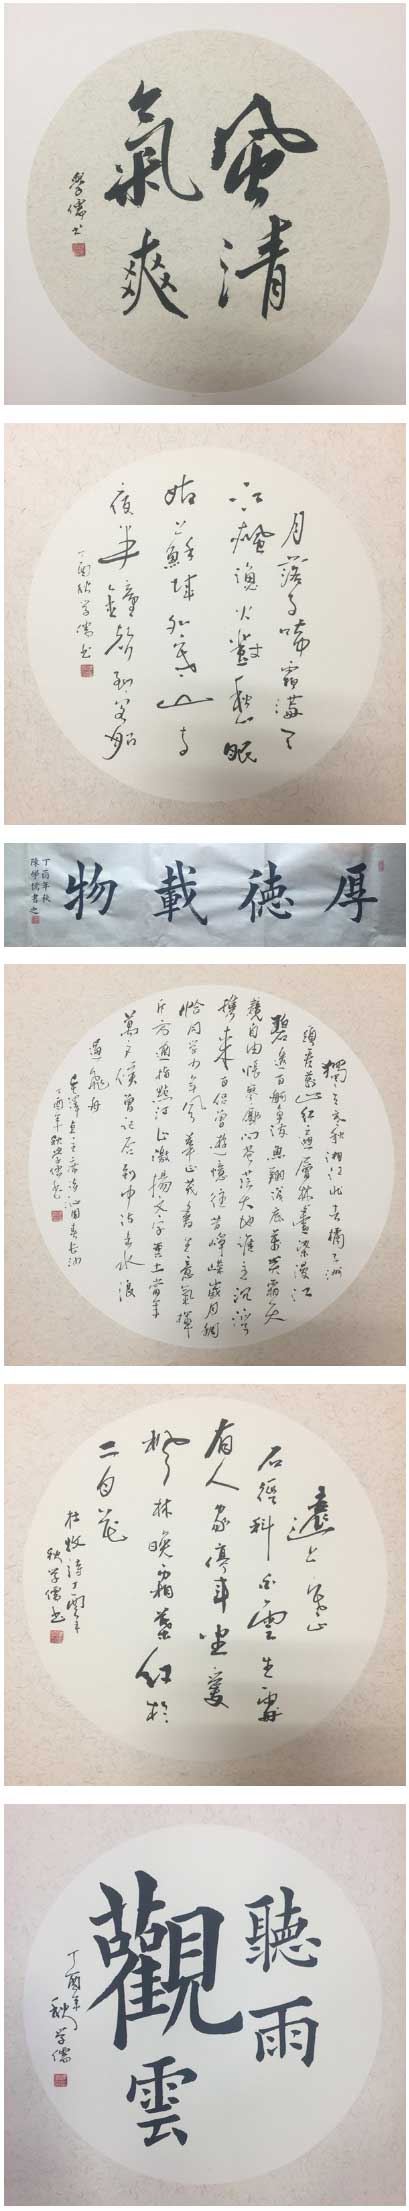 風清
氣爽
學儒书
月落烏啼霜满天
江楓漁火對愁眠
姑蘇城外寒山寺
夜半鐘聲到客船
丁酉秋學儒书
厚德載物
丁酉年秋
陳學儒書之
獨立寒秋湘江北去橘子洲
頭看萬山红遍層林盡染漫江
碧透百舸争流鹰
翔浅底萬類霜天
競自由悵寥廓问苍茫大地谁主沉浮
携来百侣曾遊憶往昔崢嶸歲月稠
恰同学少年風華正茂書生意氣揮
斥方遒指點江山激揚文字糞土當年
萬户侯曾记否到中流击水浪
遏飛舟
毛澤東主席诗沁园春长沙
丁酉年秋学儒书
遠上寒山
石徑斜白雲生處
有人家停車坐愛
楓林晚霜葉红於
二月花
杜牧诗丁酉年
秋学儒书
聽雨
觀雲
丁酉年
秋学儒